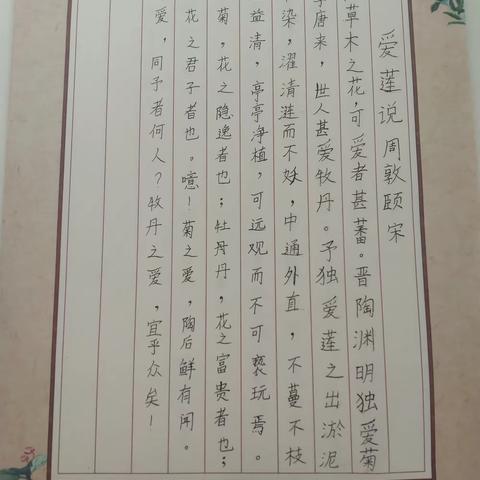 爱莲说 周敦颐 宋
草木之花,可爱者甚蕃。晋陶渊明独爱菊
唐来,世人甚爱牧丹。予独爱莲之出淤泥
染,濯清涟而不妖,中通外直,不蔓不枝
益清,亭亭净植,可远观而不可亵玩焉。
菊,花之隐逸者也;牡丹丹,花之富贵者也;
花之君子者也。噫!菊之爱,陶后鲜有闻。
爱,同予者何人?牧丹之爱,宜乎众矣!